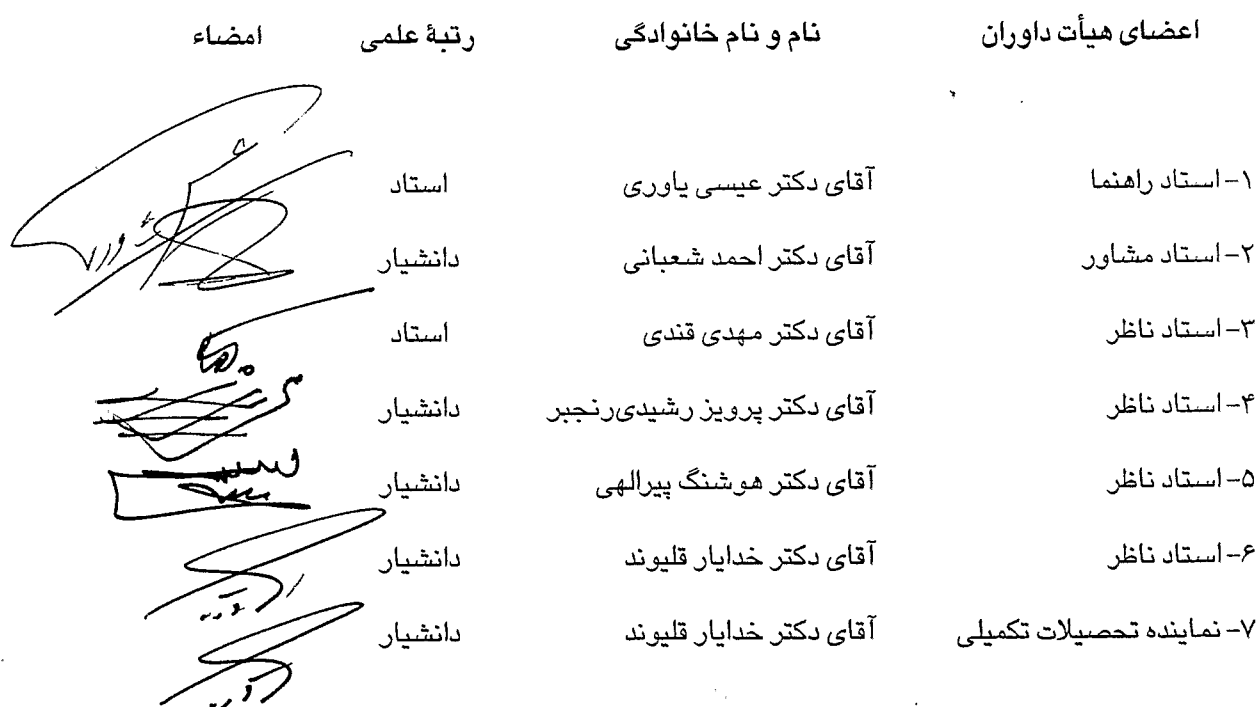 اعضای هیأت داوران نام و نام خانوادگی رتبۀ علمی امضاء
۱- استاد راهنما آقای دکتر عیسی یاوری استاد
۲- استاد مشاور آقای دکتر احمد شعبانی دانشیار
۳- استاد ناظر آقای دکتر مهدی قندی استاد
۴- استاد ناظر آقای دکتر پرویز رشیدی‌رنجبر دانشیار
۵- استاد ناظر آقای دکتر هوشنگ پیرالهی دانشیار
۶- استاد ناظر آقای دکتر خدایار قلیوند دانشیار
۷- نماینده تحصیلات تکمیلی آقای دکتر خدایار قلیوند دانشیار